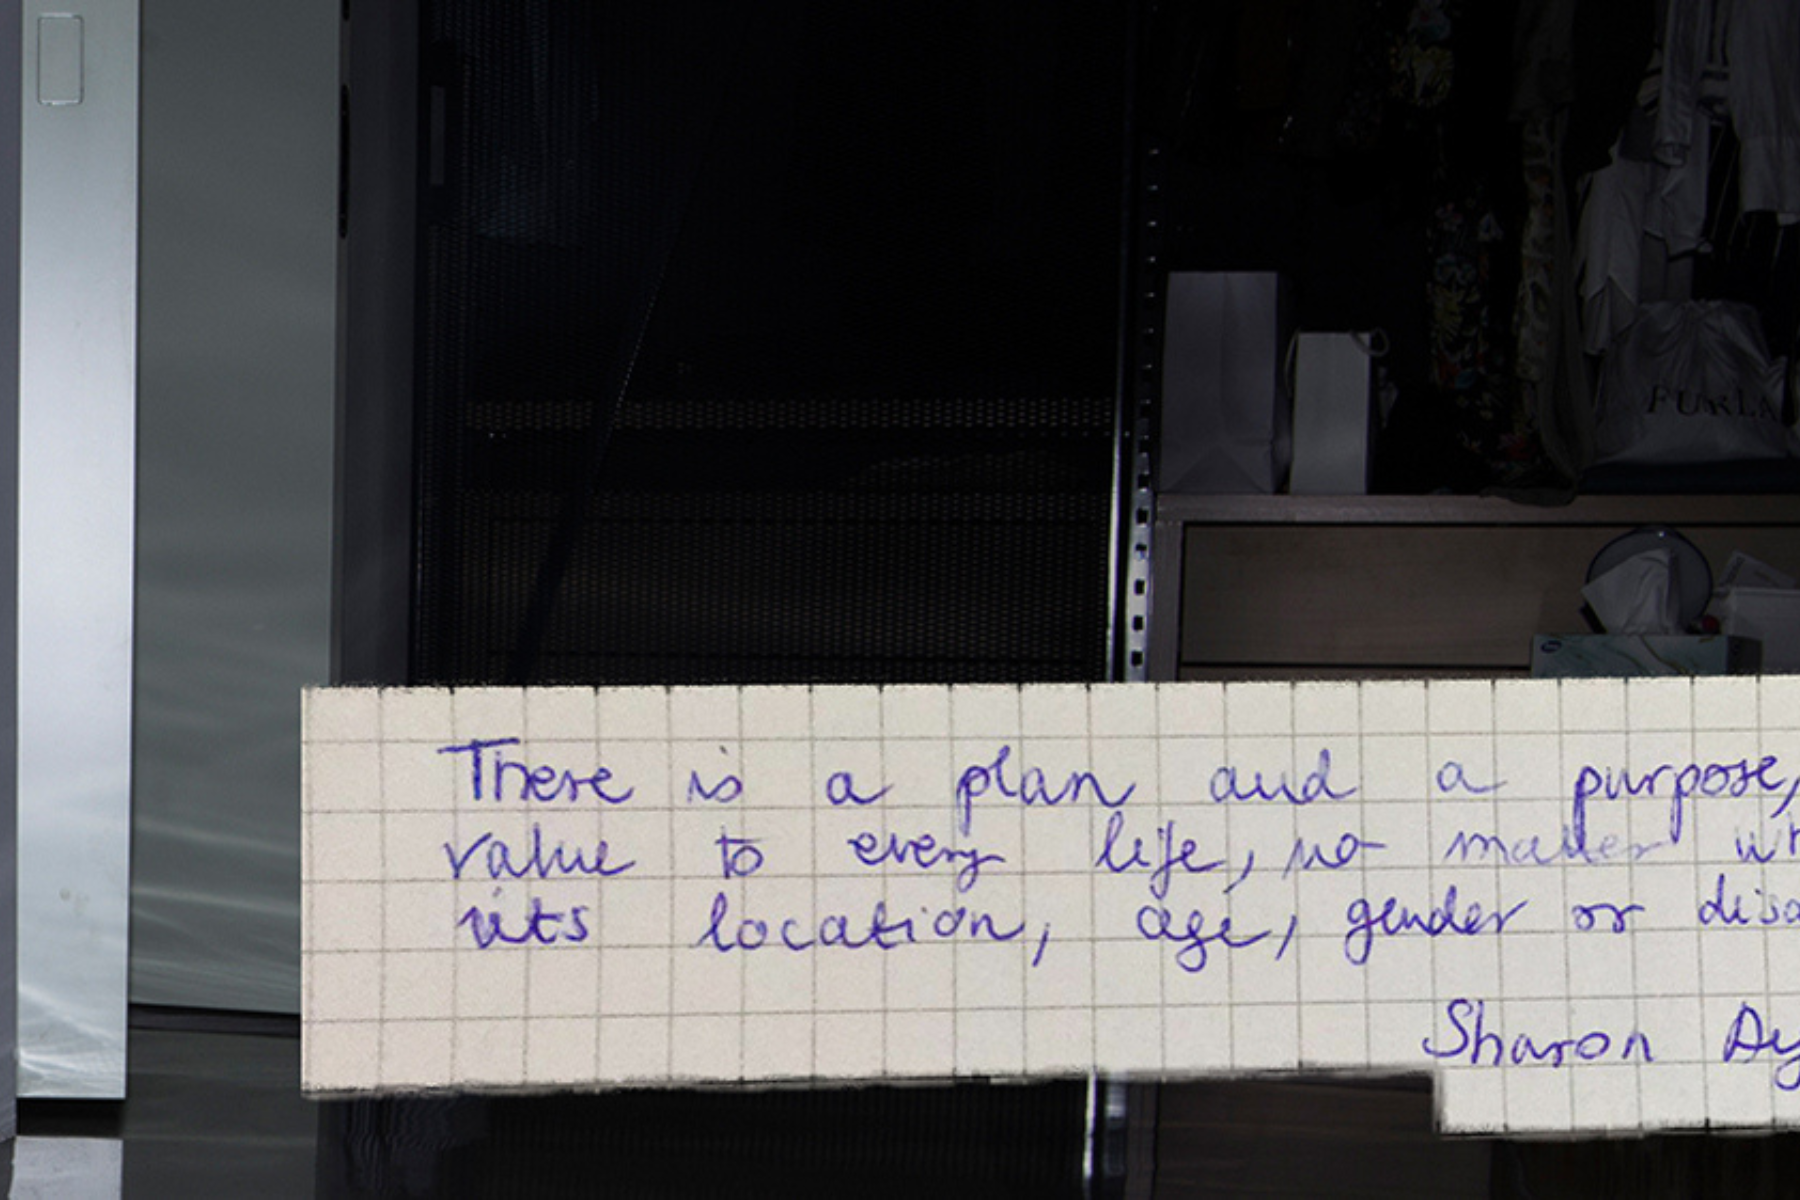 FURLA
There is a plan and a purpose,
value to every life, no matter
its location, age, gender or
Sharon